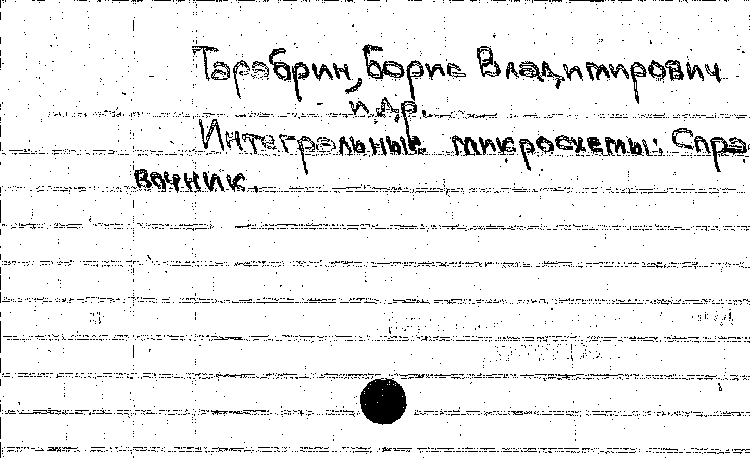 Тарабрин, Борис Владимирович
и др.
Интегральные микросхемы: Спра
вочник.